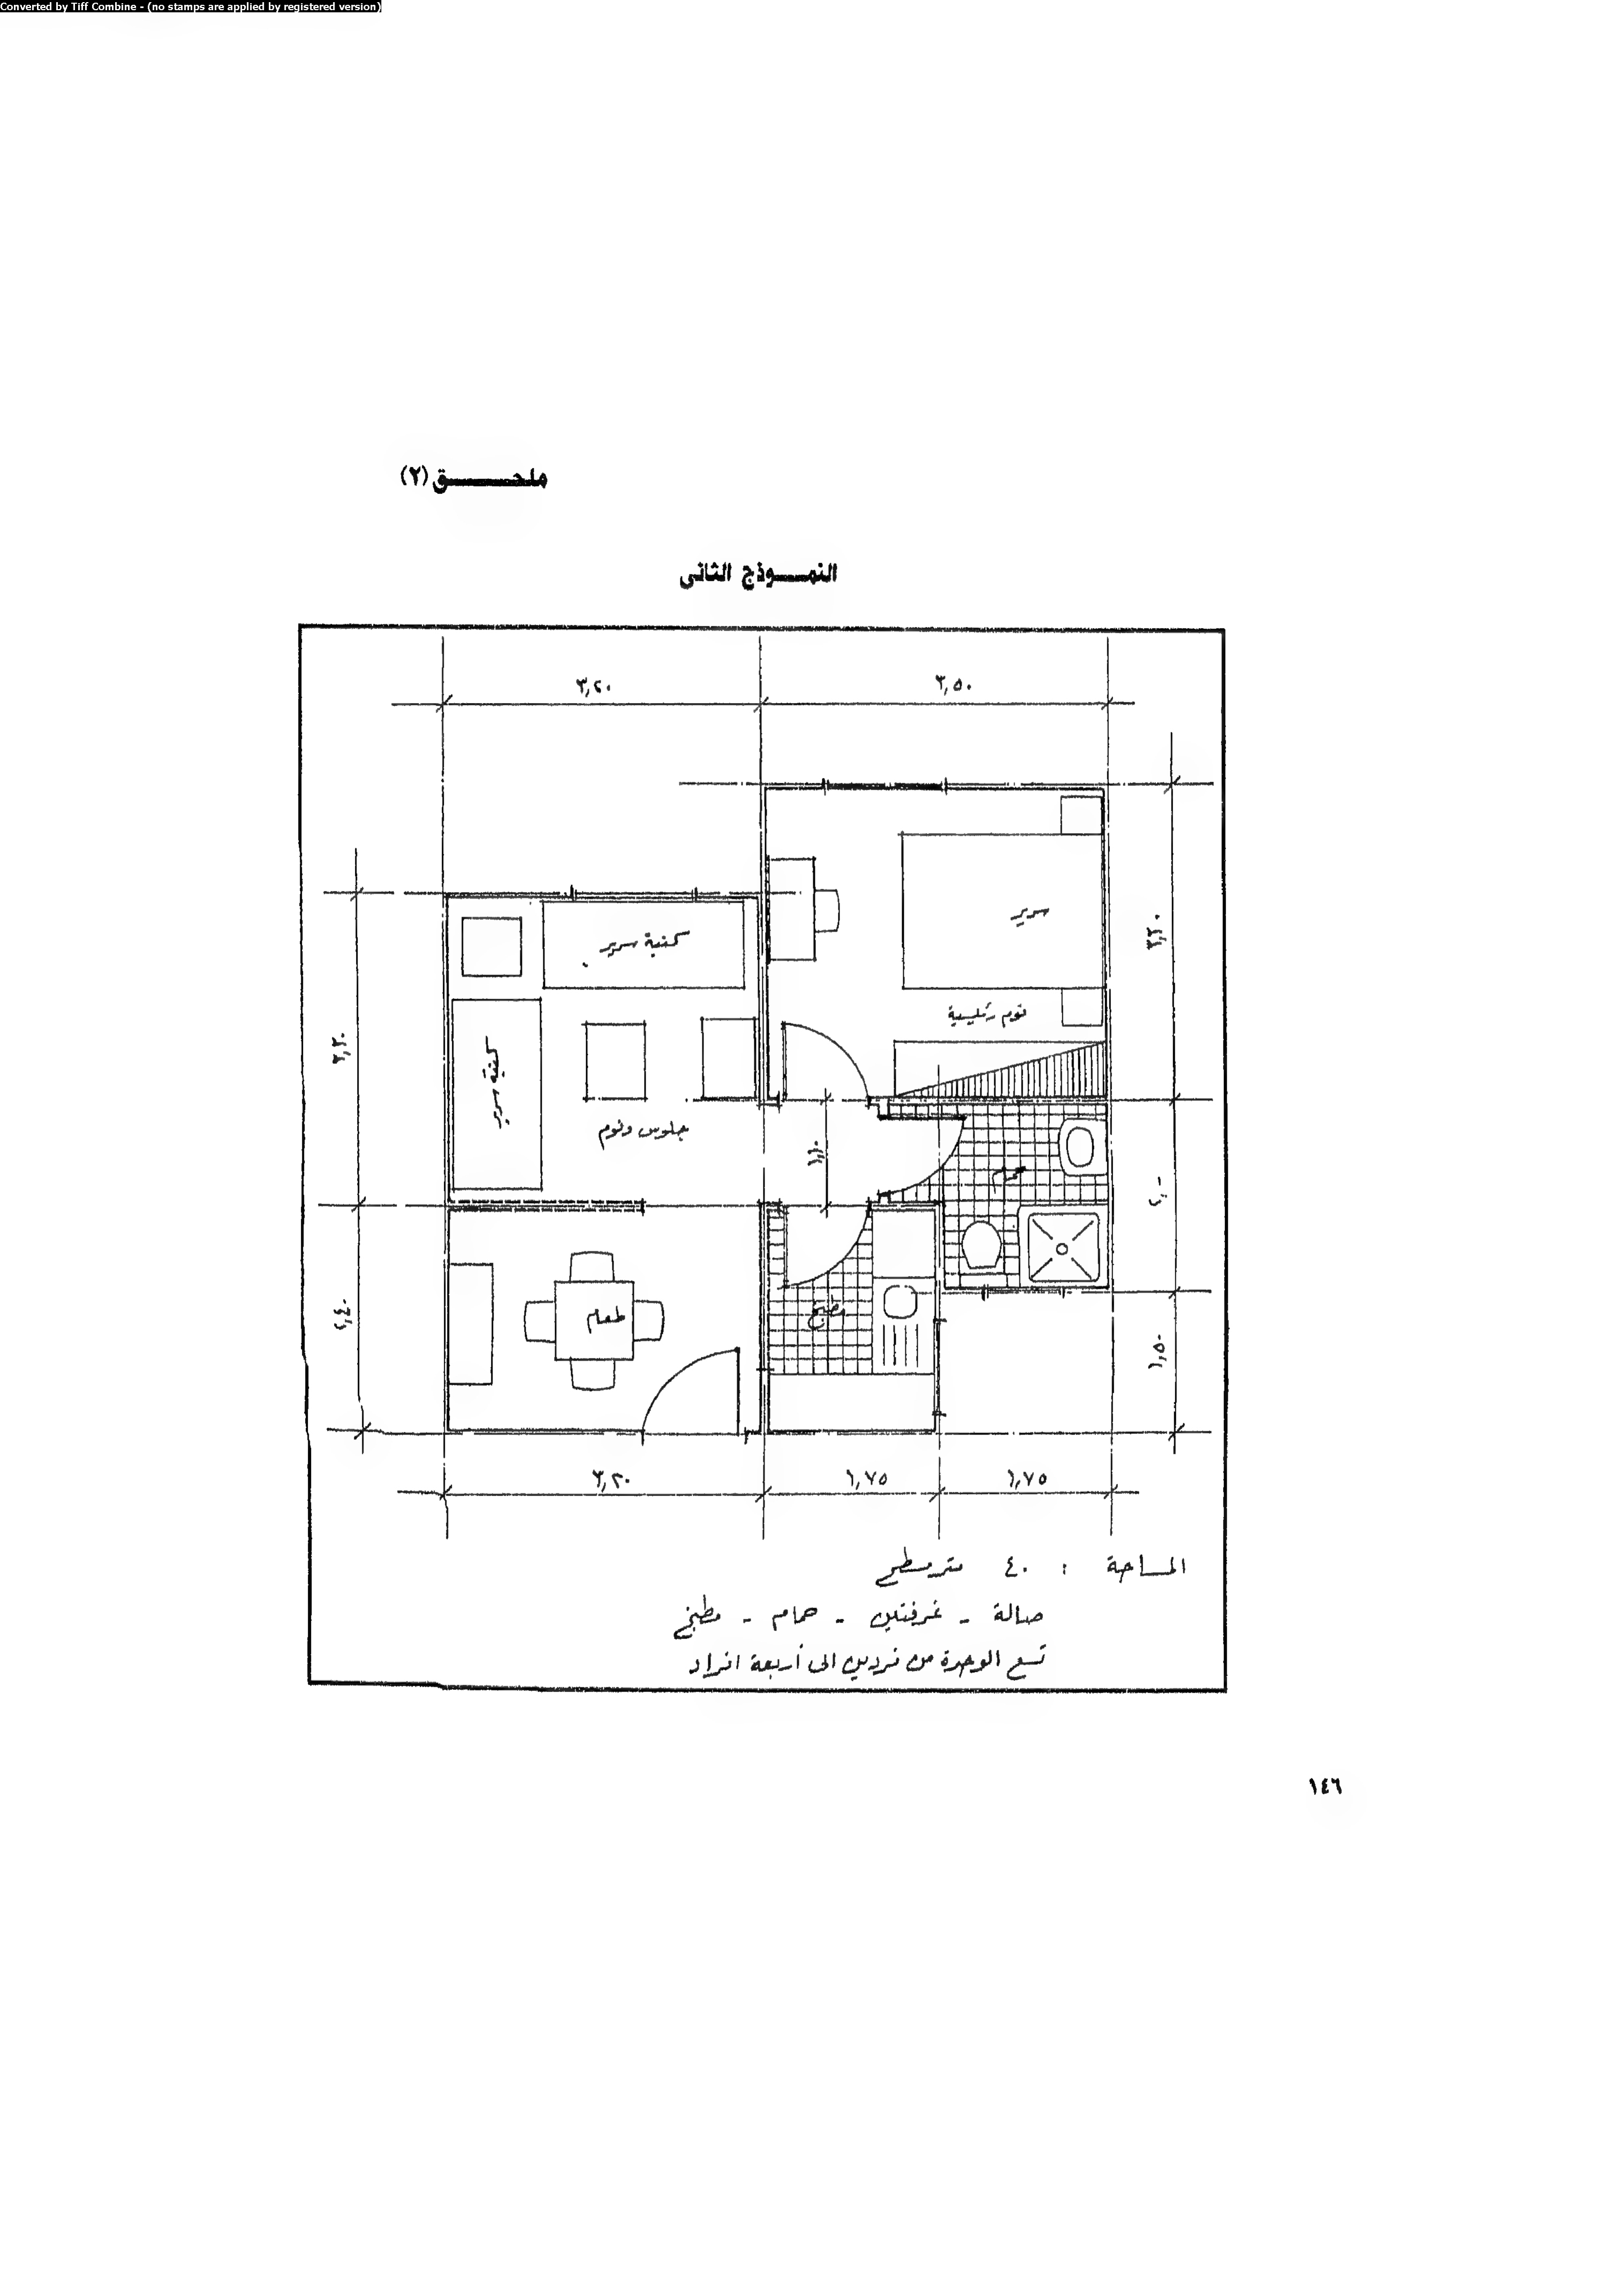 Converted by Tiff Combine - (no stamps are applied by registered version)
ملحــــــق (٢)
النمــوذج الثانى
٣,٢٠
٣,٥٠
سرير
كنبة سرير
نوم رئيسية
٣,٢٠
كنبة سرير
٣,٢٠
جلوس ونوم
١,١٠
حمام
٢,٠
طعام
مطبخ
٢,٤٠
١,٥٠
٣,٢٠
١,٧٥
١,٧٥
المساحة : ٤٠ متر مسطح
صالة - غرفتين - حمام - مطبخ
تسع الوحدة من فردين الى أربعة افراد
١٤٦